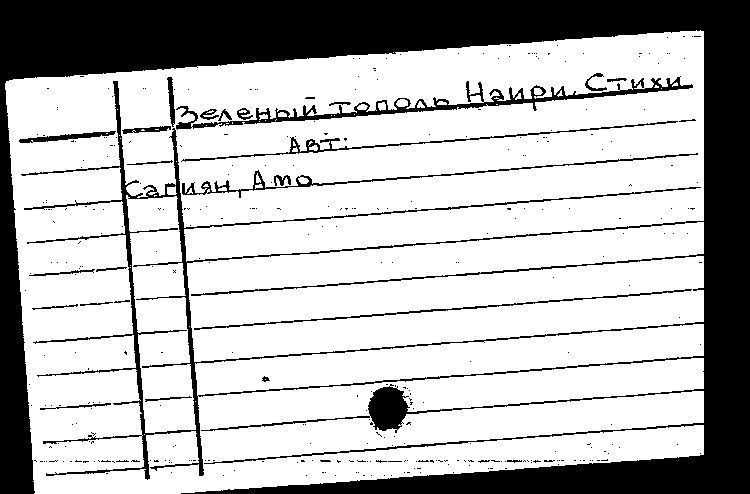 Зеленый тополь Наири. Стихи
Авт:
Сагиян, Амо